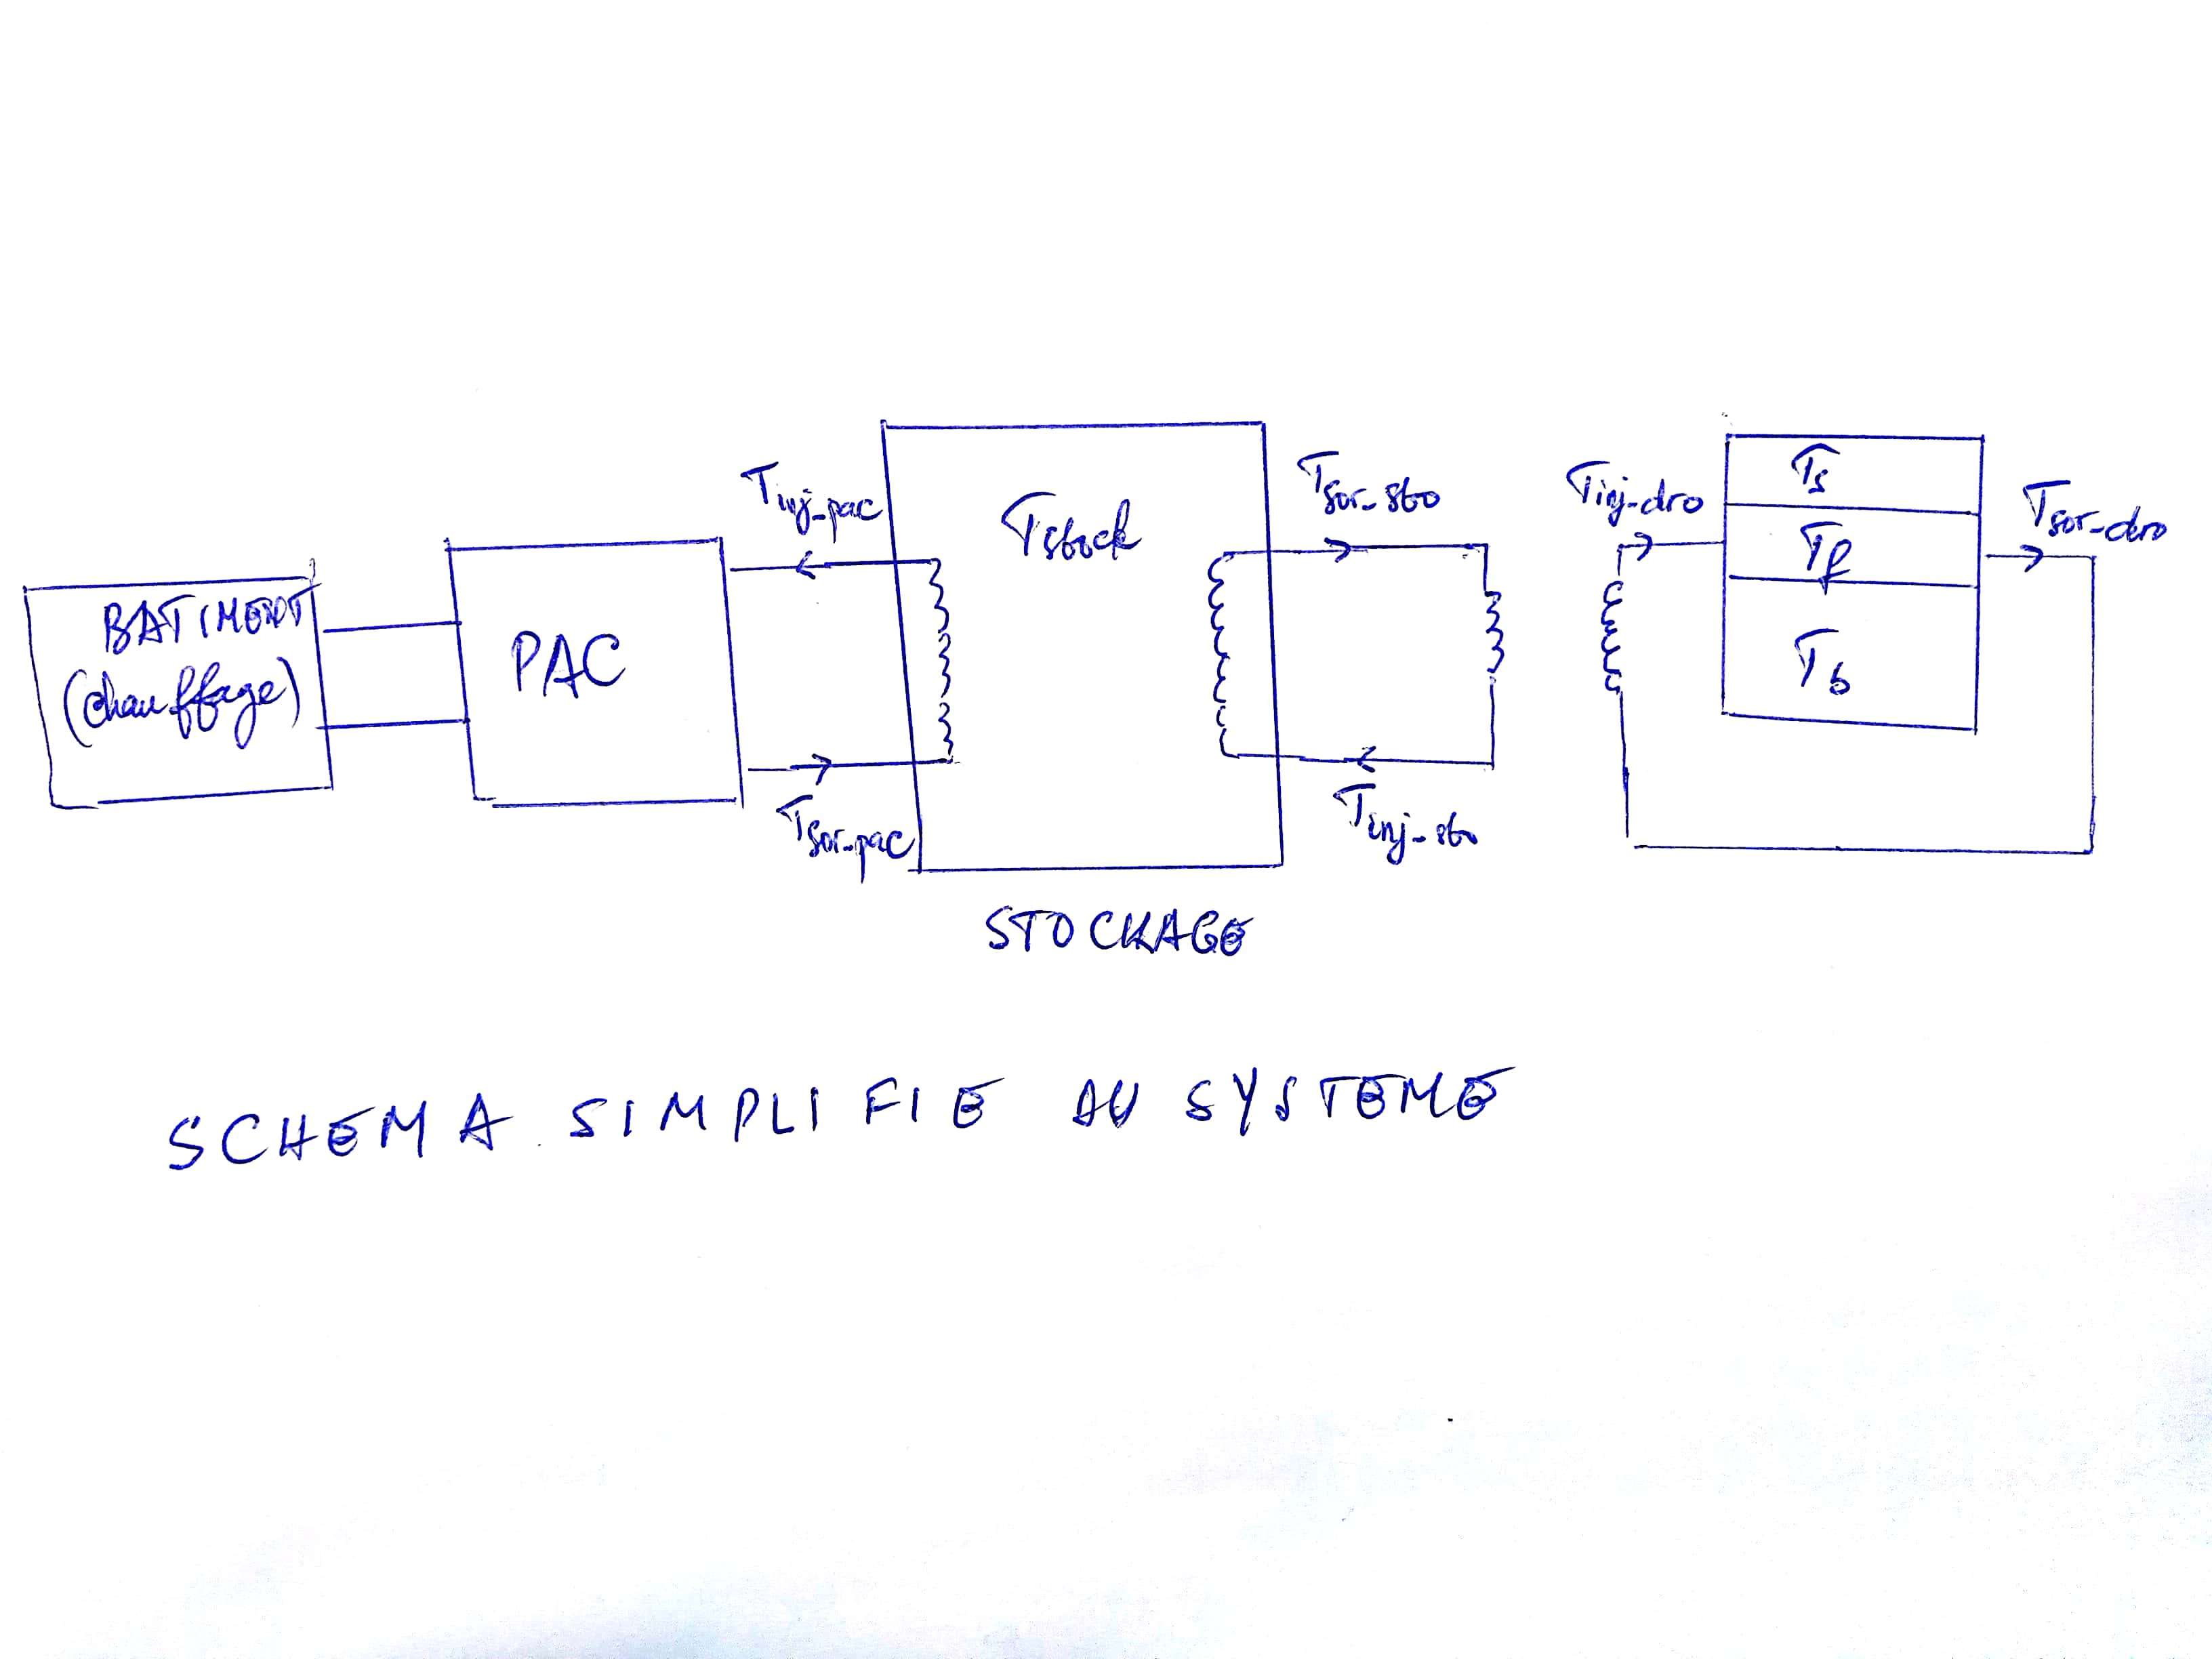 BATIMENT
(chauffage)
PAC
Tinj-pac
Tsor-pac
Tstock
Tsor-sto
Tinj-sto
Tinj-dro
Ts
Tf
Tb
Tsor-dro
STOCKAGE
SCHEMA SIMPLIFIE DU SYSTEME